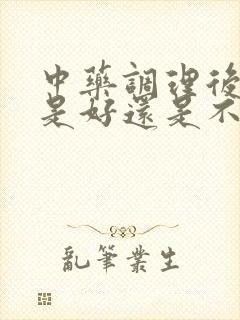 中藥調理後
是好還是不
亂筆叢生